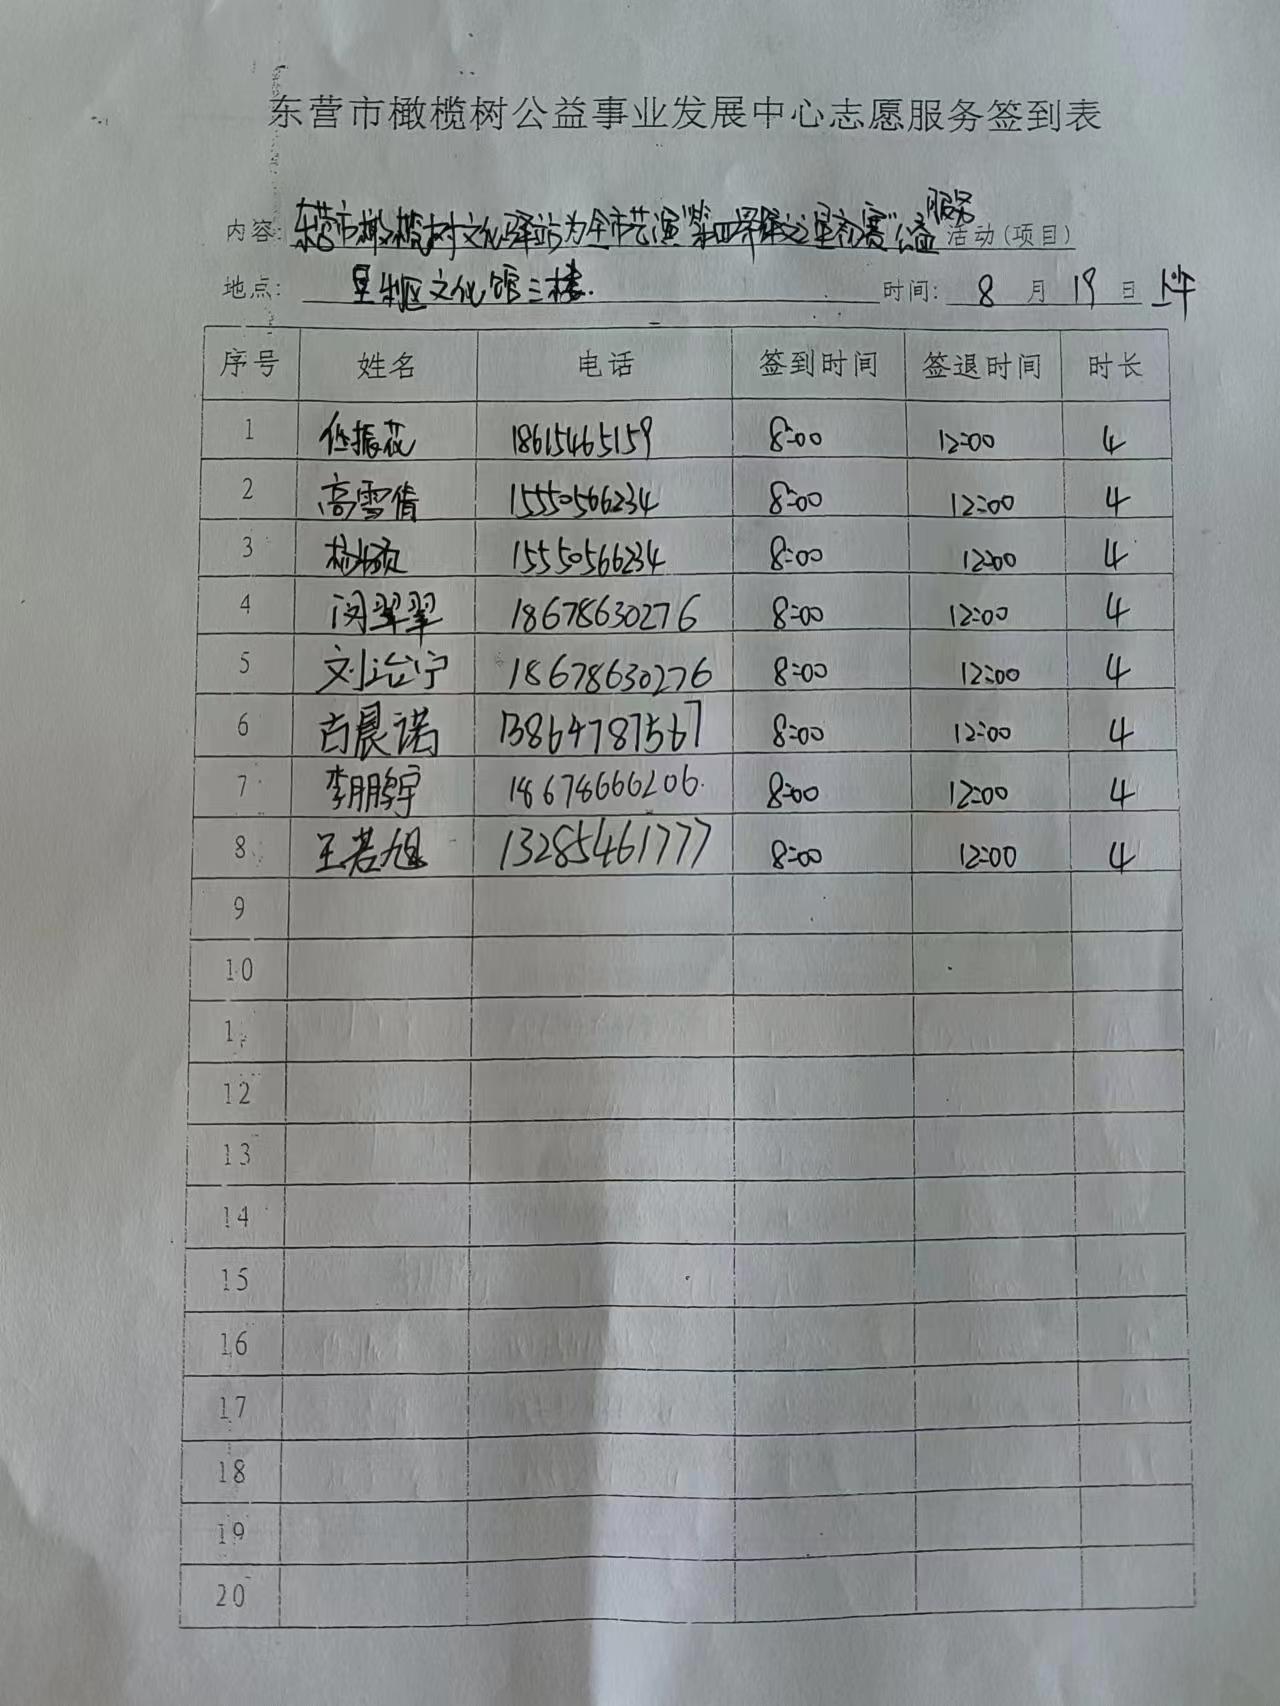 东营市橄榄树公益事业发展中心志愿服务签到表
服务
内容: 东营市橄榄树文化驿站为全市艺演“第四届群文之星初赛”公益 活动(项目)
地点: 垦利区文化馆三楼. 时间: 8 月 19 日 上午
序号 姓名 电话 签到时间 签退时间 时长
1 任振花 18615465159 8:00 12:00 4
2 高雪倩 15550566234 8:00 12:00 4
3 15550566234 8:00 12:00 4
4 闵翠翠 18678630276 8:00 12:00 4
5 刘治宁 18678630276 8:00 12:00 4
6 古晨诺 13864787567 8:00 12:00 4
7 李鹏宇 18678666206. 8:00 12:00 4
8 王若旭 13285461777 8:00 12:00 4
9
10
1
12
13
14
15
16
17
18
19
20